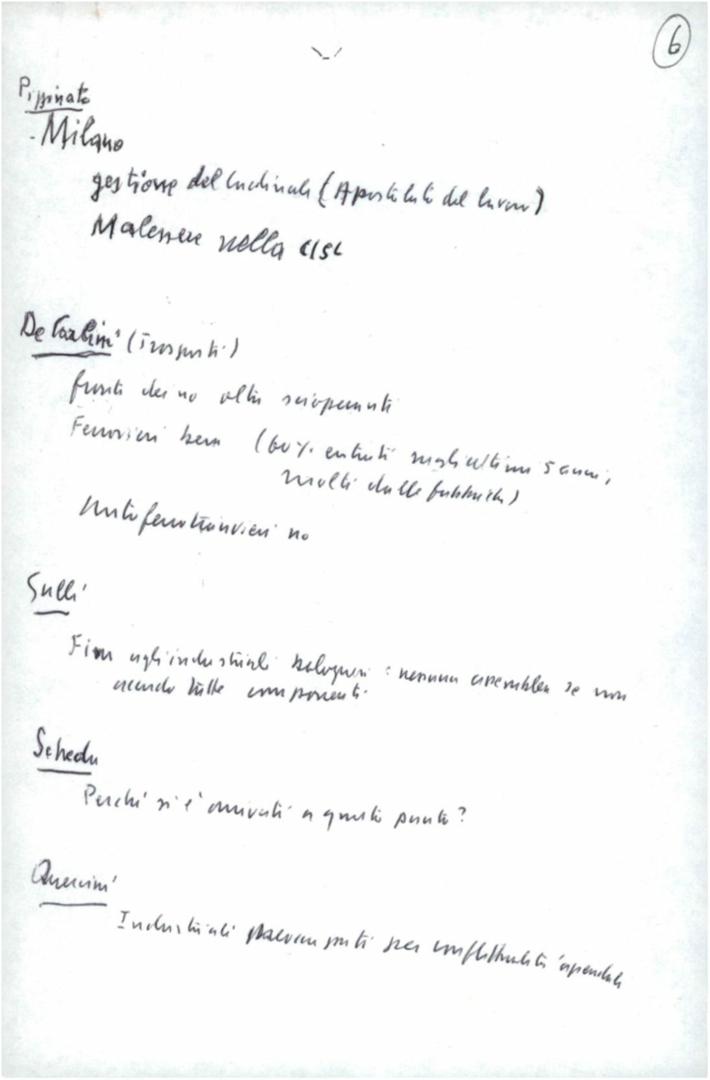 6
Pizzinato
- Milano
gestione del Cardinale (Apostolato del lavoro)
Malessere nella CISL
De Carlini (Trasporti)
fronte dei no altri scioperanti
Ferrovieri bene (60% entrati negli ultimi 5 anni,
molti dalle fabbriche)
Autoferrotranvieri no
Sulli
Fiom agli industriali bolognesi: nessuna assemblea se non
quando tutte componenti
Scheda
Perché si è arrivati a questo punto?
Quercini
Industriali per conflittualità aziendale